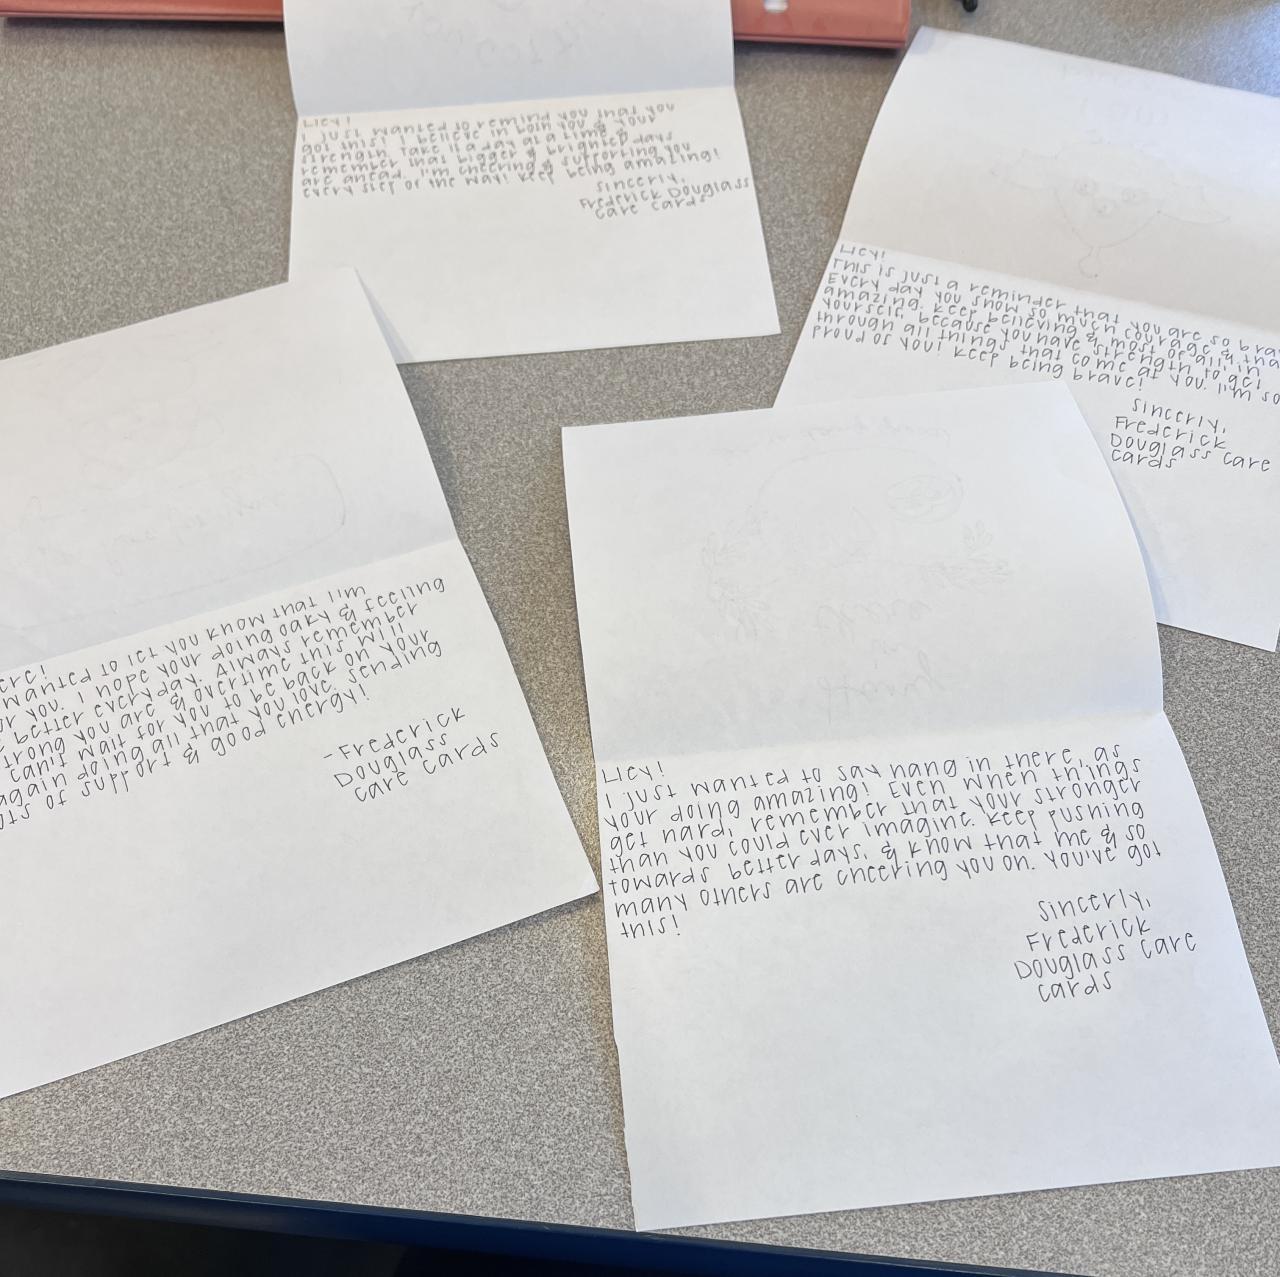 Hey!
I just wanted to remind you that you
got this! I believe in both you & your
strength. Take it a day at a time &
remember that bigger & brighter days
are ahead. I'm cheering & supporting you
every step of the way! Keep being amazing!
Sincerly,
Frederick Douglass
Care Cards
Hey!
This is just a reminder that you are so
Every day you show so much courage &
amazing. Keep believing & most of all, in
yourself, because you have strength to get
through all things that come at you. I'm so
proud of you! Keep being brave!
Sincerly,
Frederick
Douglass Care
Cards
wanted to let you know that I'm
you. I hope your doing oaky & feeling
better everyday. Always remember
you are & overtime this will
can't wait for you to be back on your
again doing all that you love. Sending
of support & good energy!
-Frederick
Douglass
Care Cards
Hey!
I just wanted to say hang in there, as
your doing amazing! Even when things
get hard, remember that your stronger
than you could ever imagine. Keep pushing
towards better days, & know that me & so
many others are cheering you on. You've got
this!
Sincerly,
Frederick
Douglass Care
Cards